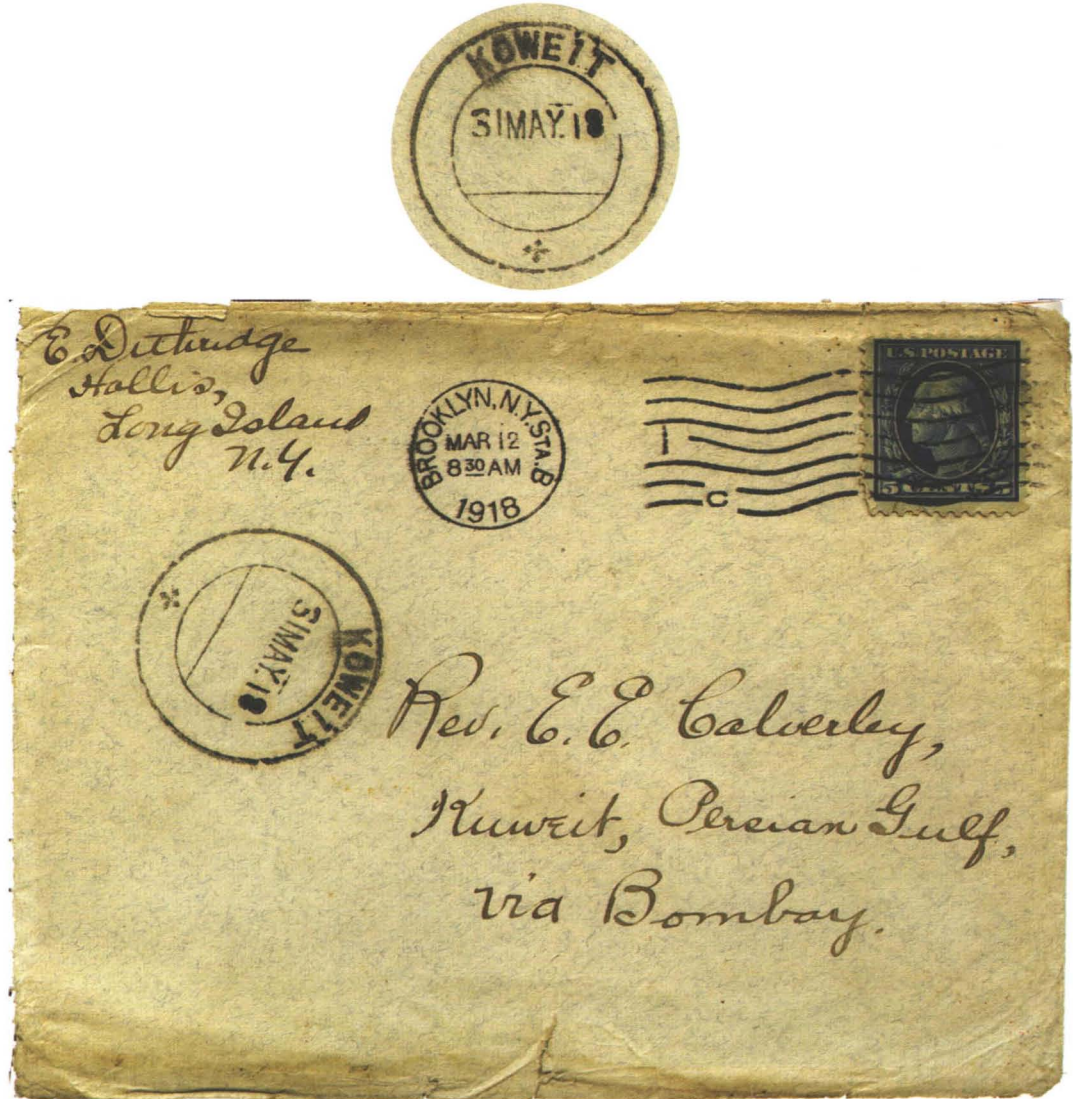 KOWEIT
31MAY.18
E Dithridge
Hollis,
Long Island
N.Y.
BROOKLYN, N.Y. STA. B
MAR 12
8 30 AM
1918
1
C
U.S. POSTAGE
5 CENTS 5
KOWEIT
31MAY.18
Rev. E. E. Calverley,
Kuweit, Persian Gulf,
via Bombay.